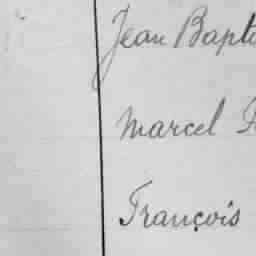 Jean Bapti
Marcel
François